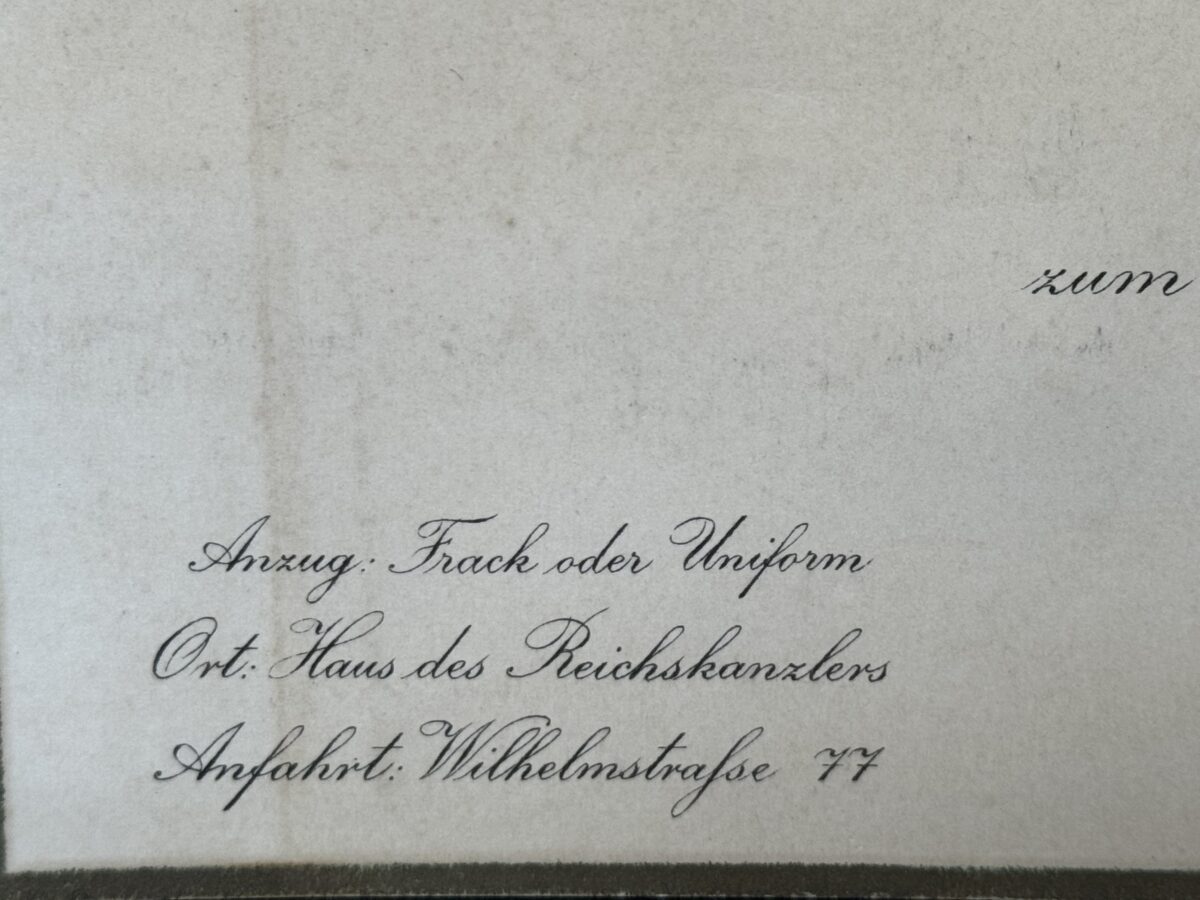 zum
Anzug: Frack oder Uniform
Ort: Haus des Reichskanzlers
Anfahrt: Wilhelmstraſse 77